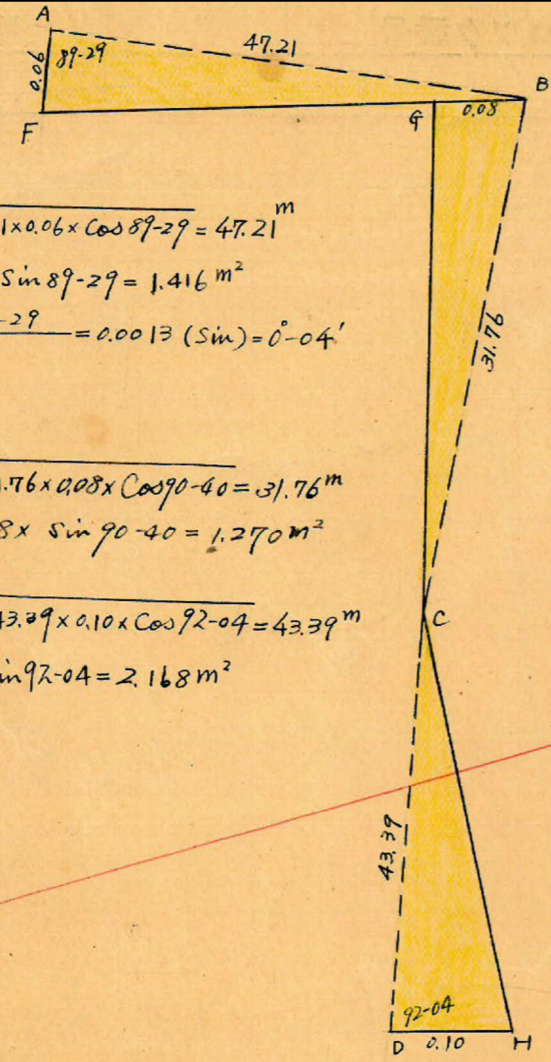 A
89-29
47.21
0.06
B
F
G
0.08
1×0.06×Cos 89-29 = 47.21 m
Sin 89-29 = 1.416 m²
-29
= 0.0013 (Sin) = 0°-04'
31.76
.76×0.08×Cos90-40 = 31.76 m
8× Sin 90-40 = 1.270 m²
43.39×0.10×Cos 92-04 = 43.39 m
C
in92-04 = 2.168 m²
43.39
92-04
D
0.10
H